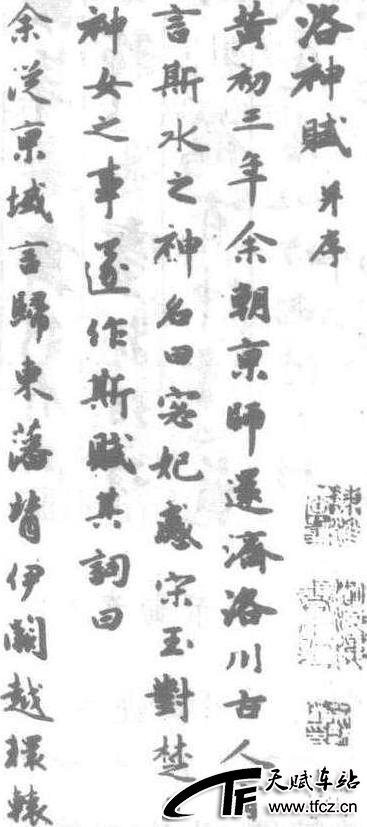 洛神賦 并序
黄初三年余朝京師還濟洛川古人
言斯水之神名曰宓妃感宋玉對楚
神女之事遂作斯賦其詞曰
余從京域言歸東藩背伊闕越轘轅
天赋车站
www.tfcz.cn